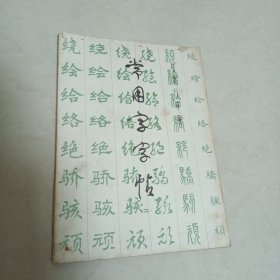 常用字字帖
二
绕 绘 给 络 绝 骄 骇 顽
绕 绘 给 络 绝 骄 骇 顽
绕 绘 给 络 绝 骄 骇 顽
绕 绘 给 络 绝 骄 骇 顽
绕 绘 给 络 绝 骄 骇 顽